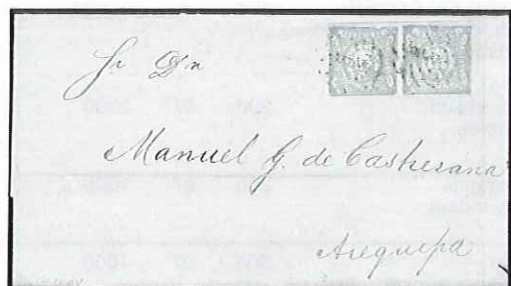 Sr Dn
Manuel G. de Castresana
Arequipa